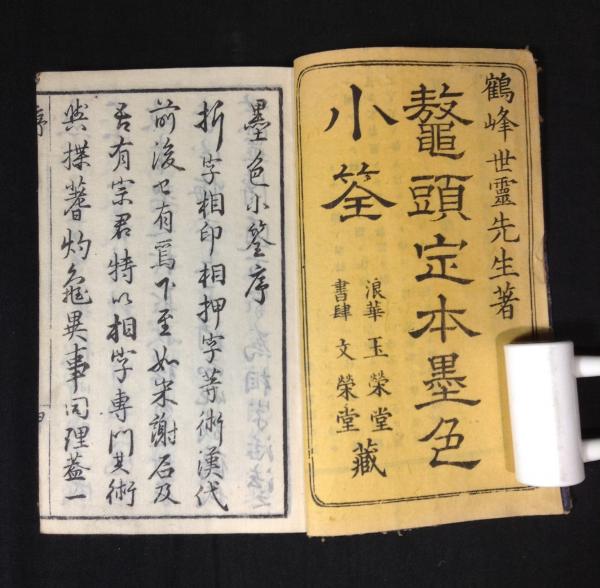 鶴峰世靈先生著
鼇頭定本墨色
小筌
浪華 玉榮堂
書肆 文榮堂
藏
墨色小筌序
折字相印相押字等術漢代
前後已有焉下至如宋謝石及
吾有宗君特以相字專門其術
與揲蓍灼龜異事同理蓋一
序